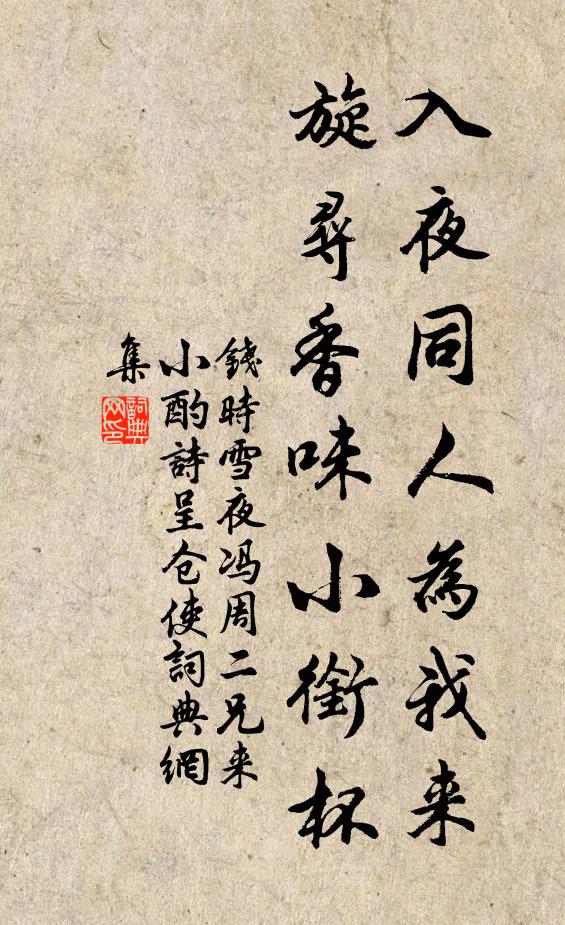 入夜同人為我来
旋尋香味小銜杯
錢時雪夜冯周二兄来
小酌詩呈仓使詞典網
集
詞典網印